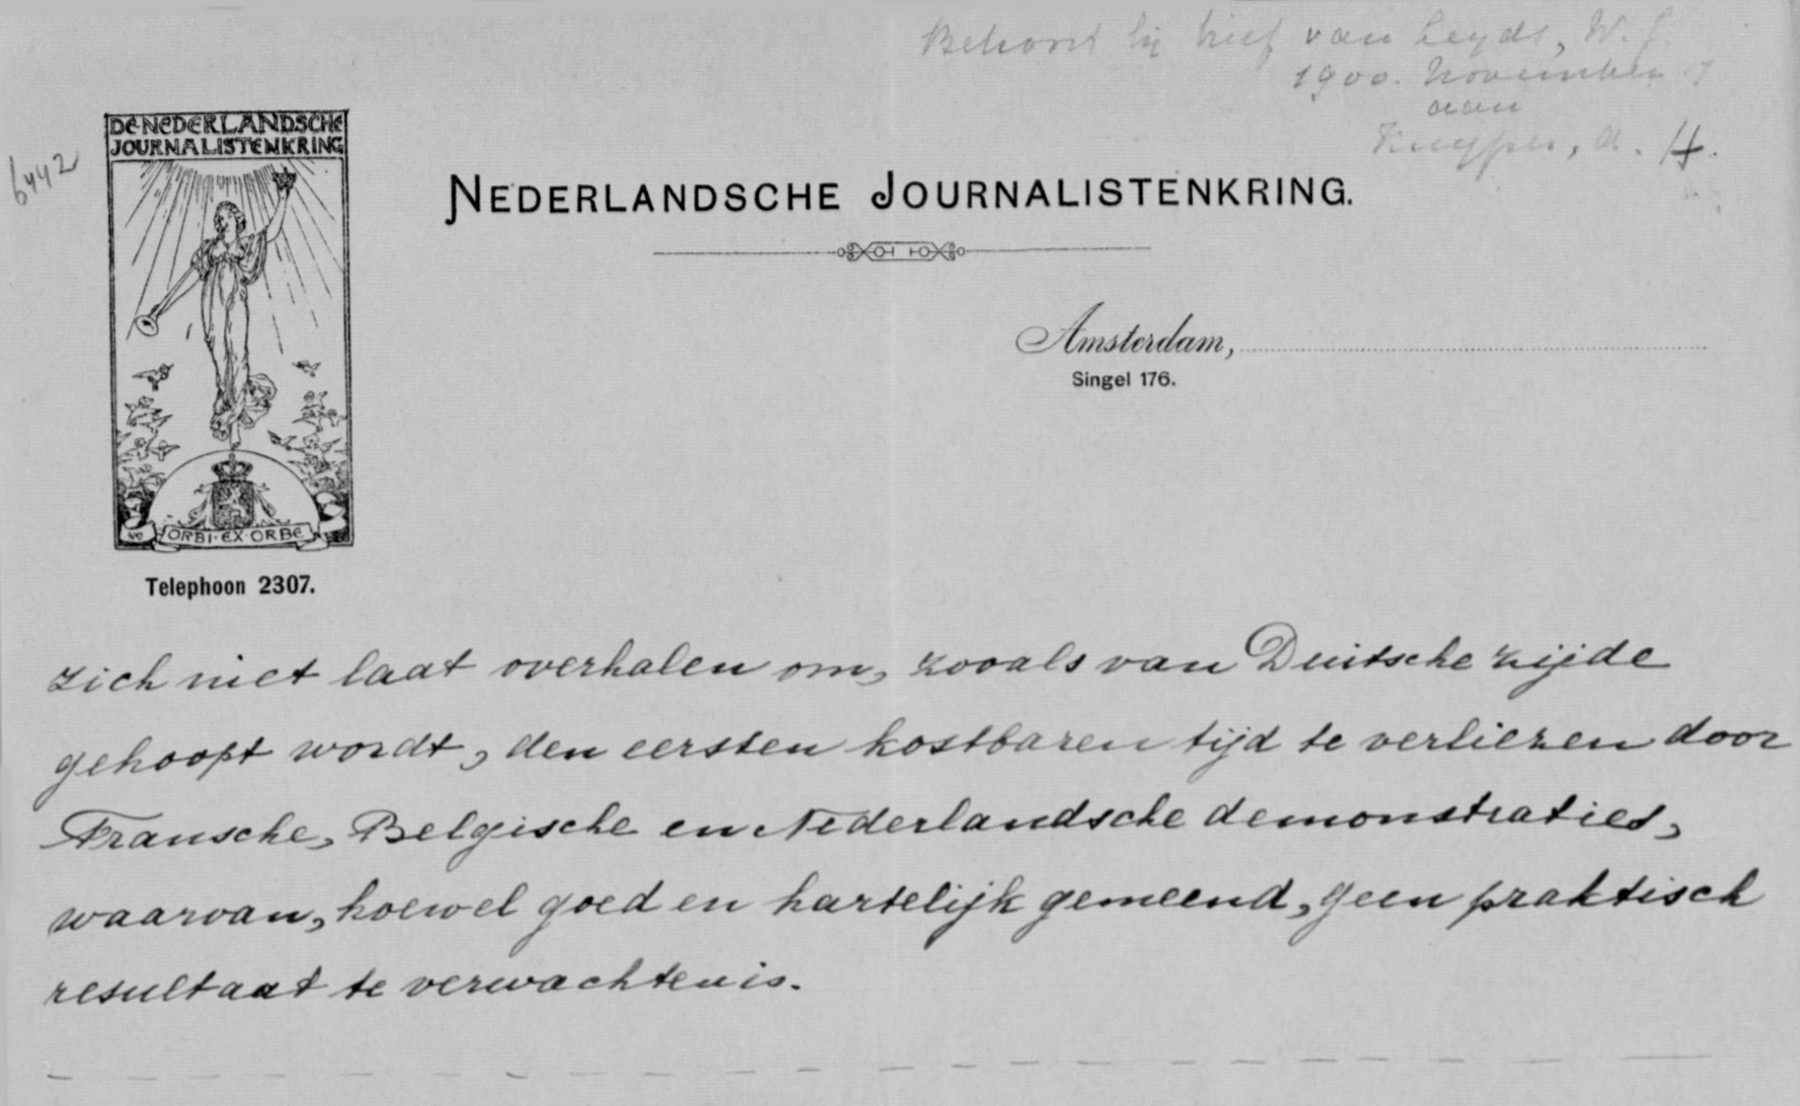 Behoort bij brief van Leyds, W.J.
1900. November 17
aan
Kuyper, A. H.
6442
DE NEDERLANDSCHE
JOURNALISTENKRING
NEDERLANDSCHE JOURNALISTENKRING.
Amsterdam,
Singel 176.
ORBI·EX·ORBE
Telephoon 2307.
zich niet laat overhalen om, zooals van Duitsche zijde
gehoopt wordt, den eersten kostbaren tijd te verliezen door
Fransche, Belgische en Nederlandsche demonstraties,
waarvan, hoewel goed en hartelijk gemeend, geen praktisch
resultaat te verwachten is.